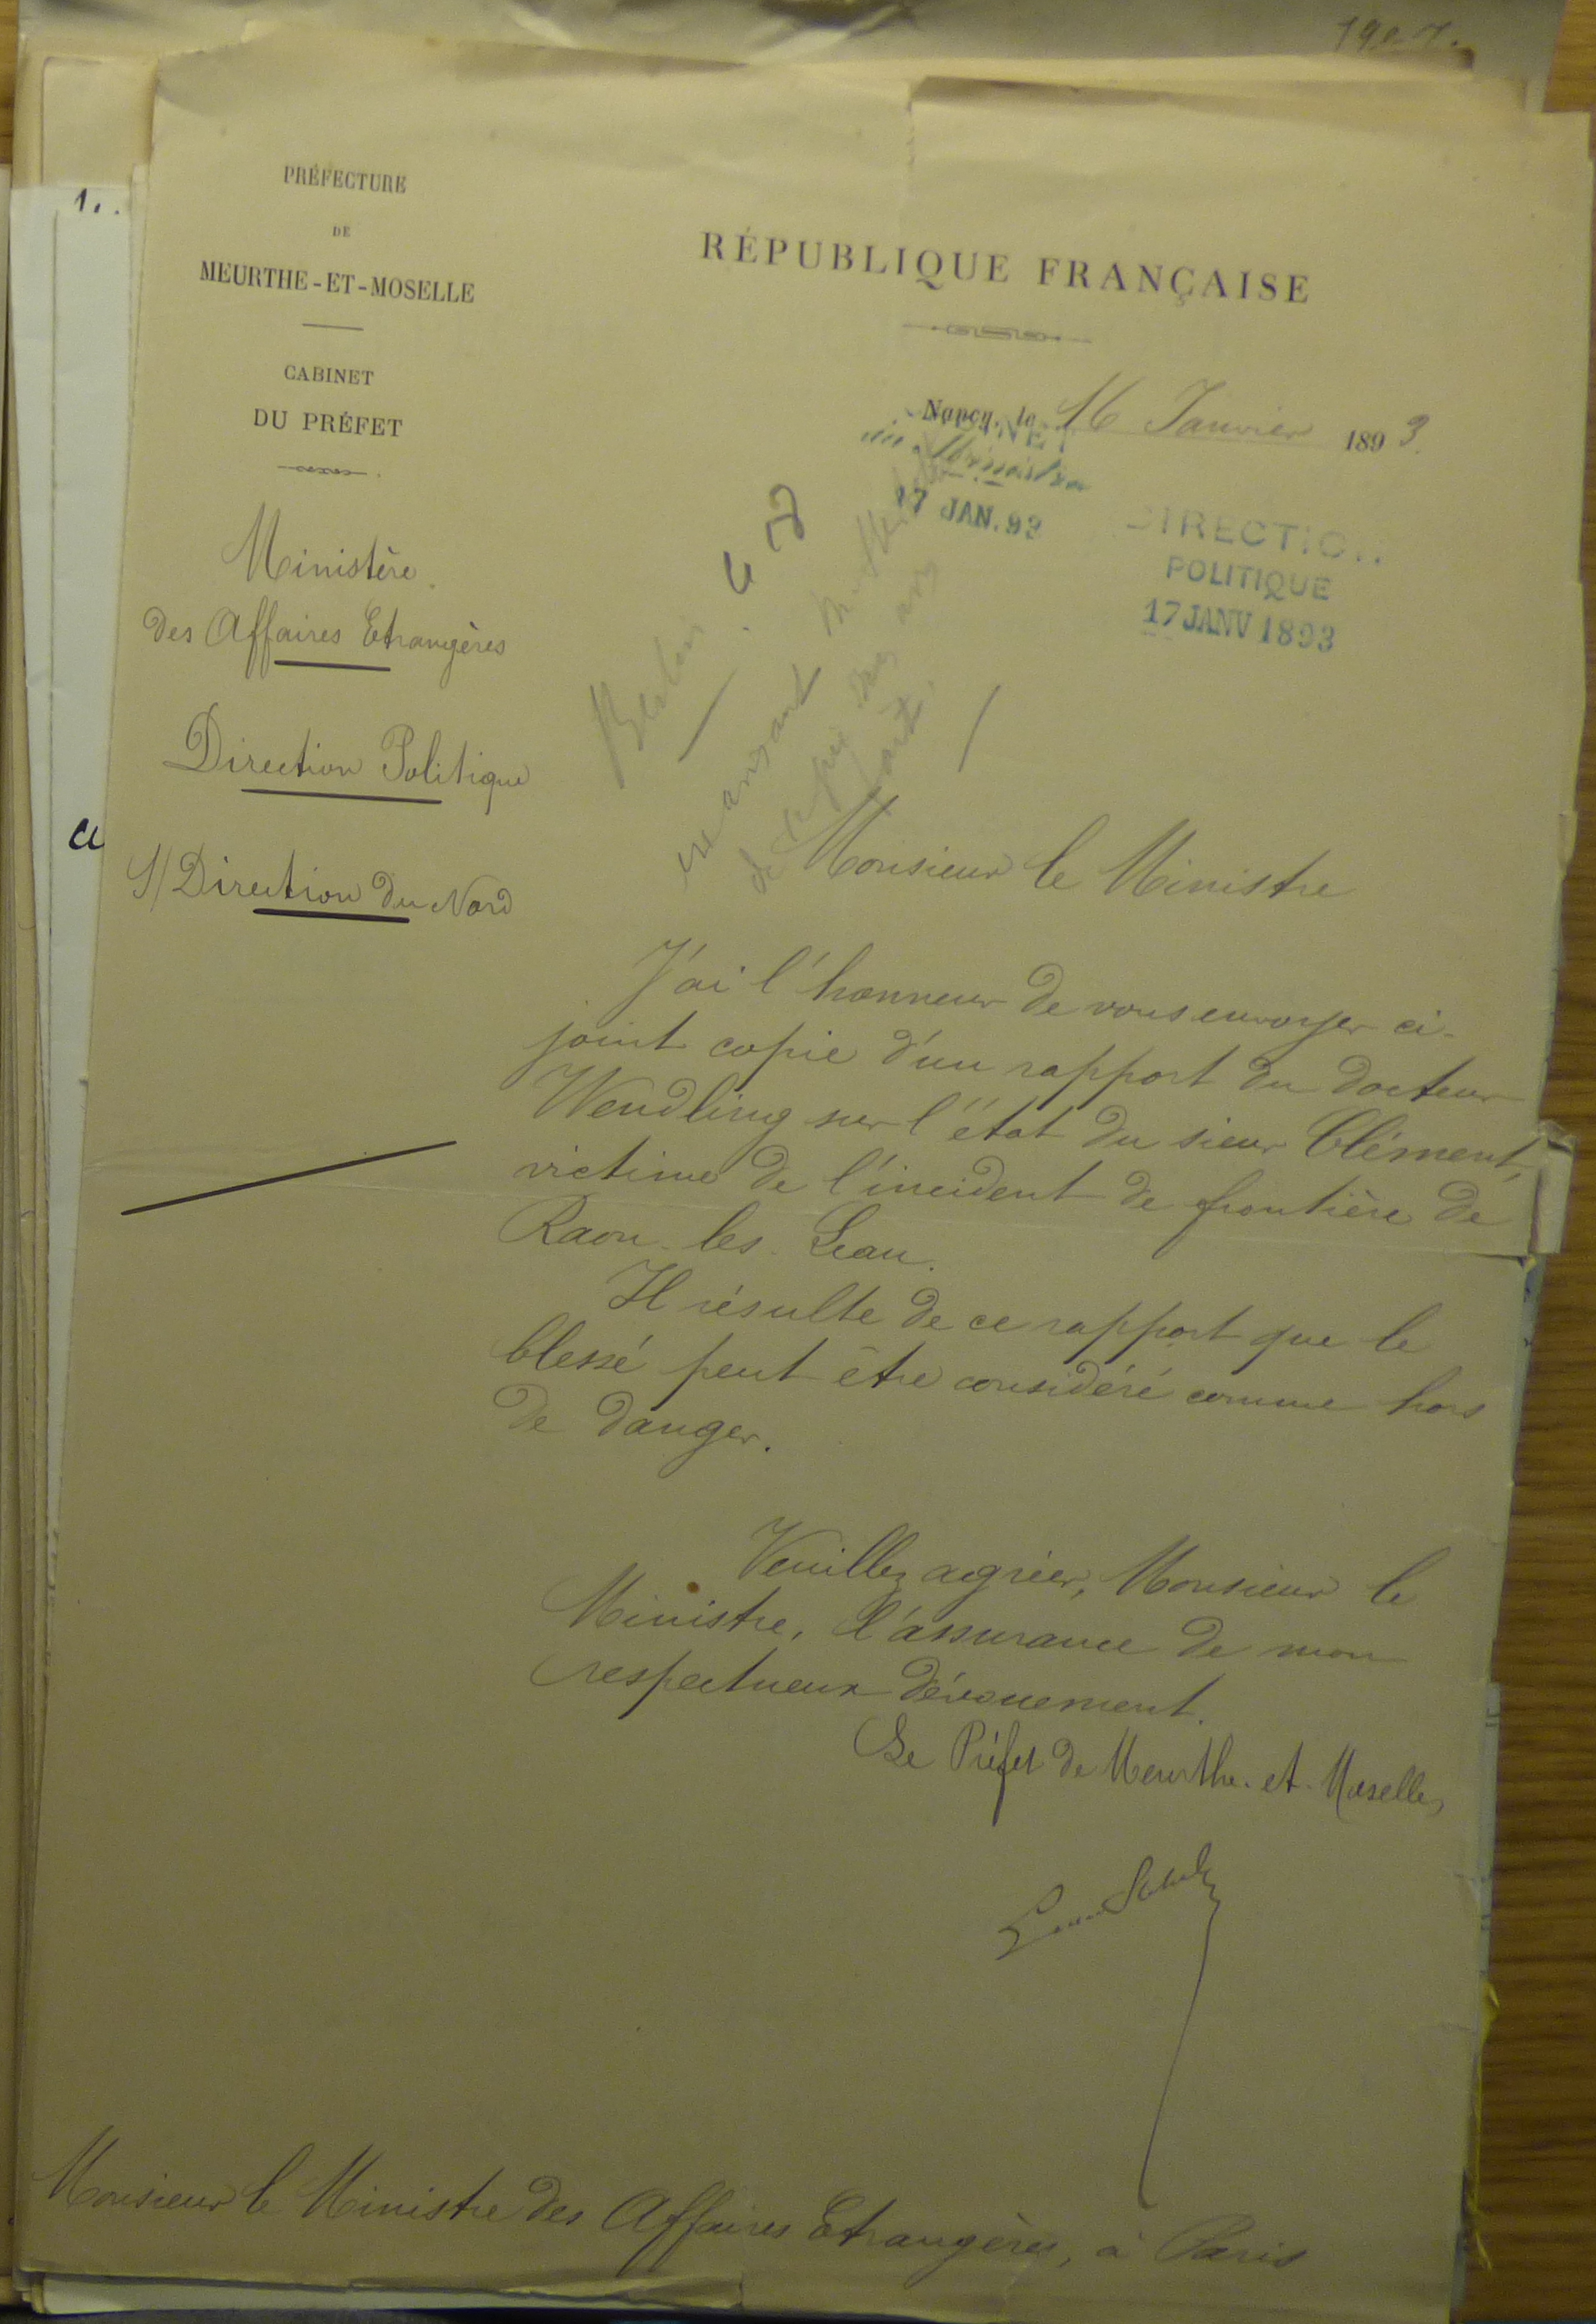 PRÉFECTURE
DE
MEURTHE-ET-MOSELLE
CABINET
DU PRÉFET
RÉPUBLIQUE FRANÇAISE
Nancy, le 16 Janvier 1893.
CABINET
du Ministre
17 JAN. 93
DIRECTION
POLITIQUE
17 JANV 1893
Ministère
des Affaires Etrangères
Direction Politique
S/Direction du Nord
Berlin
Monsieur le Ministre
J'ai l'honneur de vous envoyer ci-
joint copie d'un rapport du docteur
Wendling sur l'état du sieur Clément,
victime de l'incident de frontière de
Raon-les-Leau.
Il résulte de ce rapport que le
blessé peut être considéré comme hors
de danger.
Veuillez agréer, Monsieur le
Ministre, l'assurance de mon
respectueux dévouement.
Le Préfet de Meurthe-et-Moselle,
Monsieur le Ministre des Affaires Etrangères, à Paris